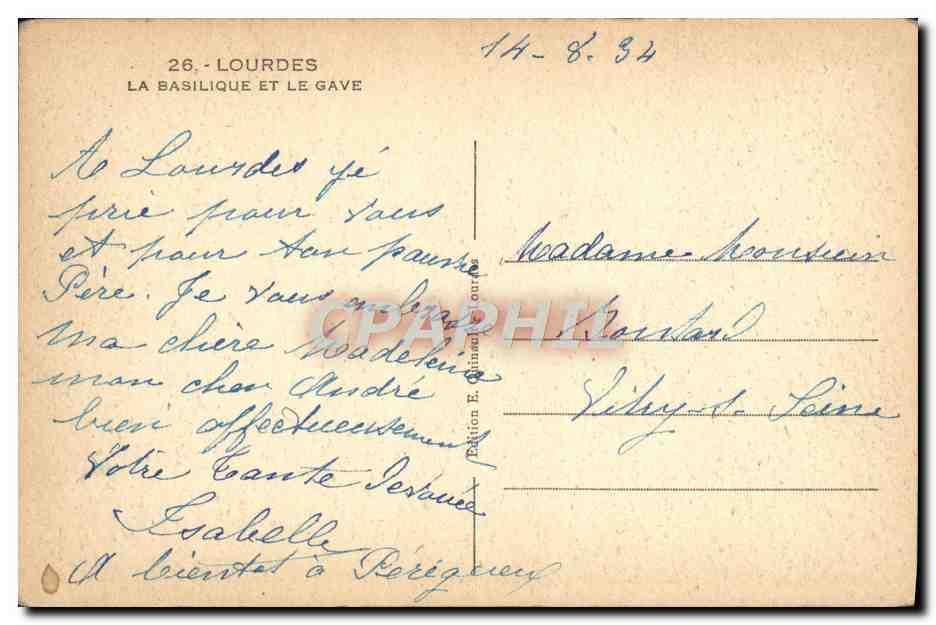 26. - LOURDES
LA BASILIQUE ET LE GAVE
14 - 8. 34
A Lourdes jé
prie pour vous
et pour ton pauvre
Père. Je vous embrasse
ma chère Madeleine
mon cher André
bien affectueusement
Votre Tante Devouée
Isabelle
A bientot à Périgueux
Edition E. Quinault, Lourdes
Madame Monsieur
Vitry-s- Seine
CPAPHIL